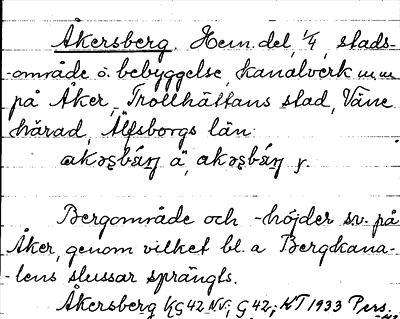 Åkersberg. Hem.del, 1/4, stads-
-område o. bebyggelse, kanalverk m.m.
på Åker, Trollhättans stad, Väne
härad, Älfsborgs län.
Bergområde och -höjder sv. på
Åker, genom vilket bl. a Bergkana-
-lens slussar sprängts.
Åkersberg KG42 N.V; G42; KT 1933 Pers.